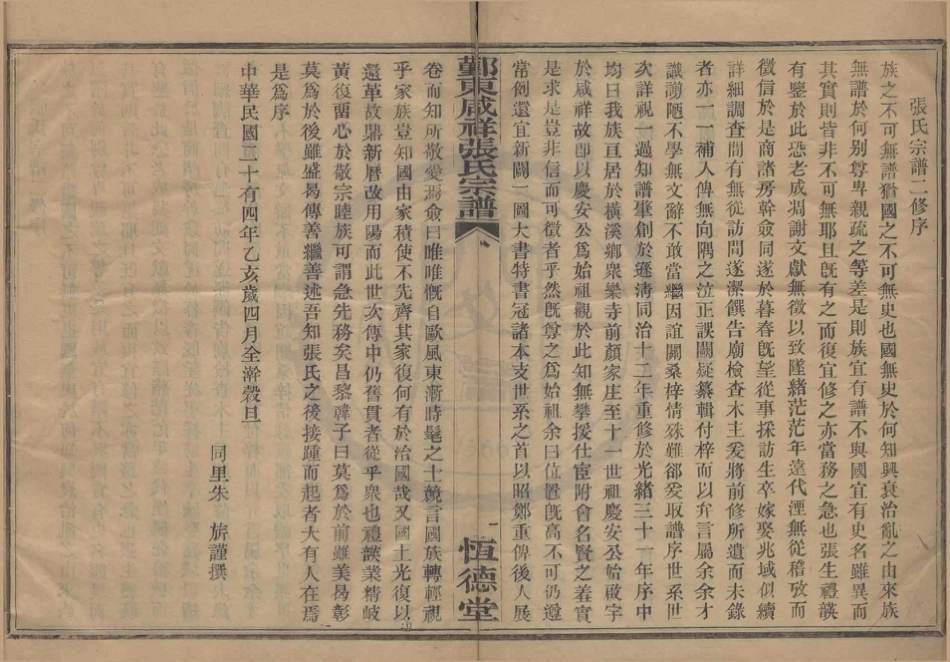 張氏宗譜二修序
族之不可無譜猶國之不可無史也國無史於何知興衰治亂之由來族
無譜於何别尊卑親疏之等差是則族宜有譜不與國宜有史名雖異而
其實則皆非不可無耶且旣有之而復宜修之亦當務之急也張生禮譔
有鑒於此恐老成凋謝文獻無徵以致墜緒茫茫年遠代湮無從稽攷而
徵信於是商諸房幹僉同遂於暮春旣望從事採訪生卒嫁娶兆域似續
詳細調查間有無從訪問遂潔饌告廟檢查木主爰將前修所遺而未錄
者亦一一補人俾無向隅之泣正譌闕疑纂輯付梓而以弁言屬余余才
識謭陋不學無文辭不敢當繼因誼關桑梓情殊難郤爰取譜序世系世
次詳視一過知譜肇創於遜清同治十二年重修於光緒三十一年序中
均曰我族亘居於橫溪鄉衆樂寺前顏家庄至十一世祖慶安公始啟宇
於咸祥故卽以慶安公爲始祖觀於此知無攀援仕宦附會名賢之羞實
是求是豈非信而可徵者乎然旣尊之爲始祖余曰位置旣高不可仍遵
常例還宜新闢一圖大書特書冠諸本支世系之首以昭鄭重俾後人展
鄞東咸祥張氏宗譜
一
恆德堂
卷而知所敬愛焉僉曰唯唯慨自歐風東漸時髦之士競言國族轉輕視
乎家族豈知國由家積使不先齊其家復何有於治國哉又國土光復以
還革故鼎新曆改用陽而此世次傳中仍舊貫者從乎衆也禮譔業精岐
黃復畱心於敬宗睦族可謂急先務矣昌黎韓子曰莫爲於前雖美易彰
莫爲於後雖盛曷傳善繼善述吾知張氏之後接踵而起者大有人在焉
是爲序
中華民國二十有四年乙亥歲四月全澣穀旦
同里朱 旂謹撰